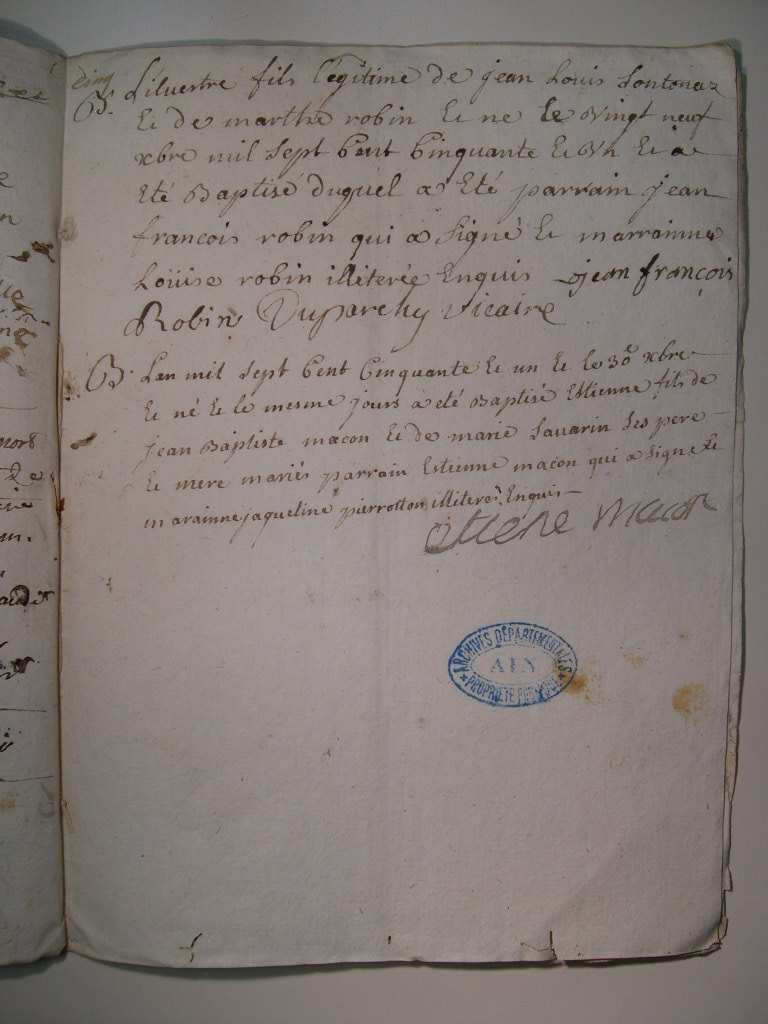 B. Siluestre fils légitime de jean Louis Sontonax
Et de marthe robin Et ne le Vingt neuf
xbre mil sept Cent Cinquante Et Vn Et a
Eté Baptisé duquel a Eté parrain jean
francois robin qui a signé Et marrainne
Loüise robin illiterée Enquis jean françois
Robin Duparchy vicaire
B. Lan mil sept Cent Cinquante Et un Et le 30e xbre
Et né Et le mesme jours a eté Baptisé Estienne fils de
jean Baptiste macon Et de marie Sauarin Ses pere
Et mere mariés parrain Estienne macon qui a signe Et
marainne jaqueline pierrotton illiteree Enquis
etiene macon
ARCHIVES DÉPARTEMENTALES
AIN
PROPRIÉTÉ PUBLIQUE